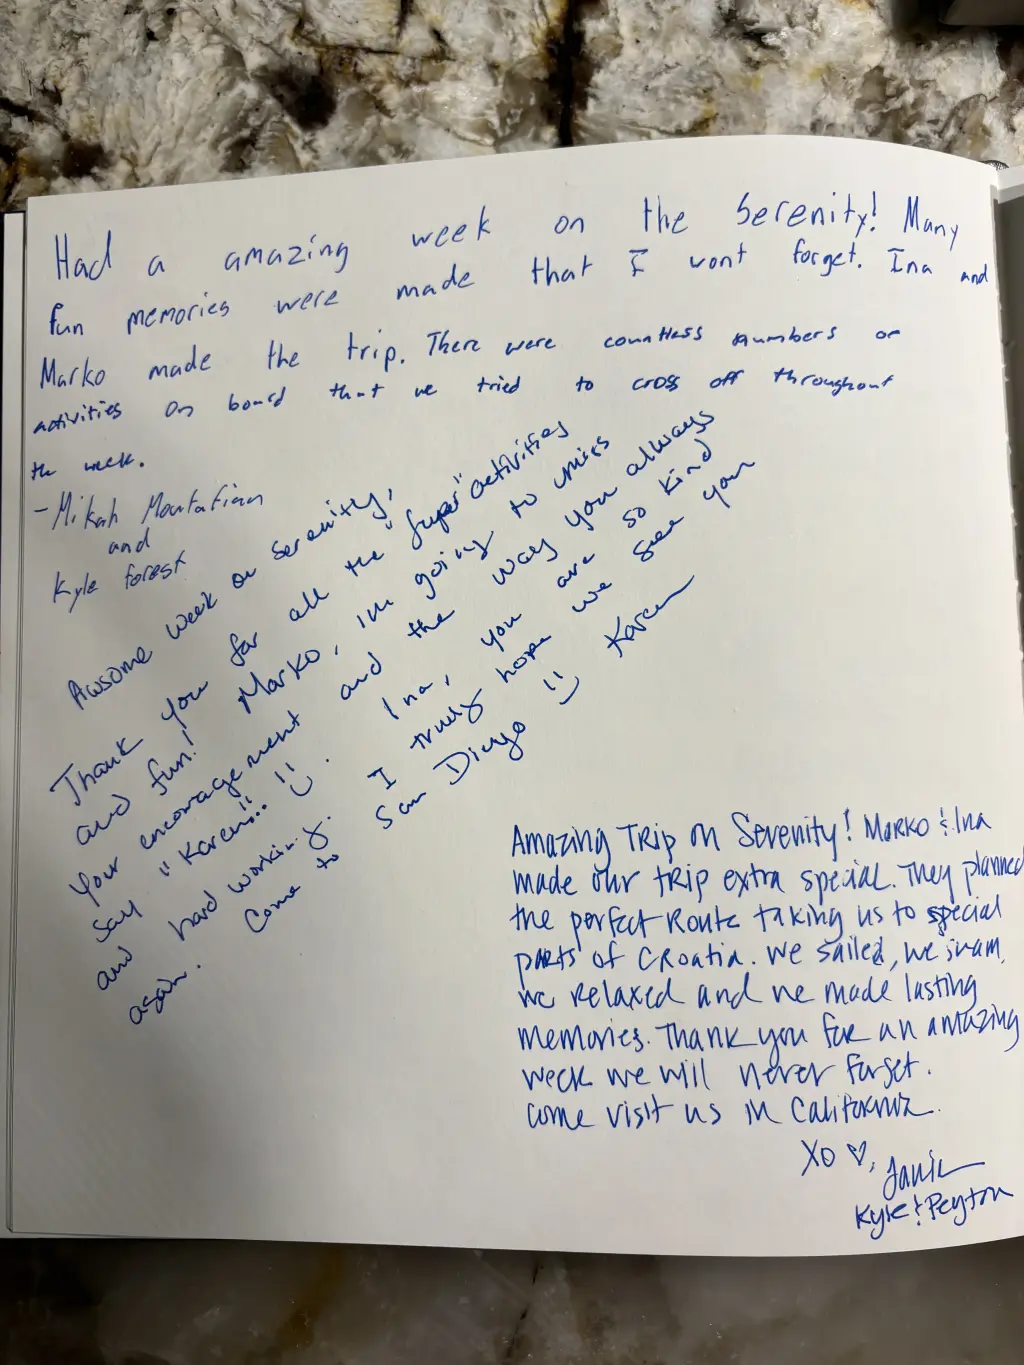 Had a amazing week on the Serenity! Many
fun memories were made that I wont forget. Ina and
Marko made the trip. There were countless numbers or
activities on board that we tried to cross off throughout
the week.
- Mikah
and
Kyle forest
Awsome week on Serenity,
Thank you for all the "super" activities
and fun! Marko, im going to miss
your encouragement and the way you always
say "Karen"... Ina, you are so kind
and hard working. I truly hope we see you
again. Come to San Diego Karen
Amazing Trip on Serenity! Marko & Ina
made our trip extra special. They planned
the perfect Route taking us to special
parts of Croatia. We sailed, we swam,
we relaxed and we made lasting
memories. Thank you for an amazing
week we will never forget.
Come visit us in California.
XO ♡,
Kyle & Peyton